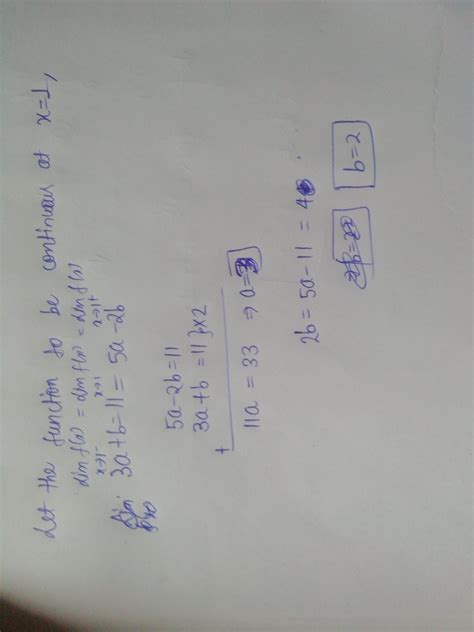 Let the function to be continuous at x=1,
lim f(x) = lim f(x) = lim f(x)
x→1⁻ x→1 x→1+
3a+b-11 = 5a-2b
5a-2b=11
3a+b =11}×2
+
11a = 33 ⇒ a=3
2b = 5a-11 = 4
b=2